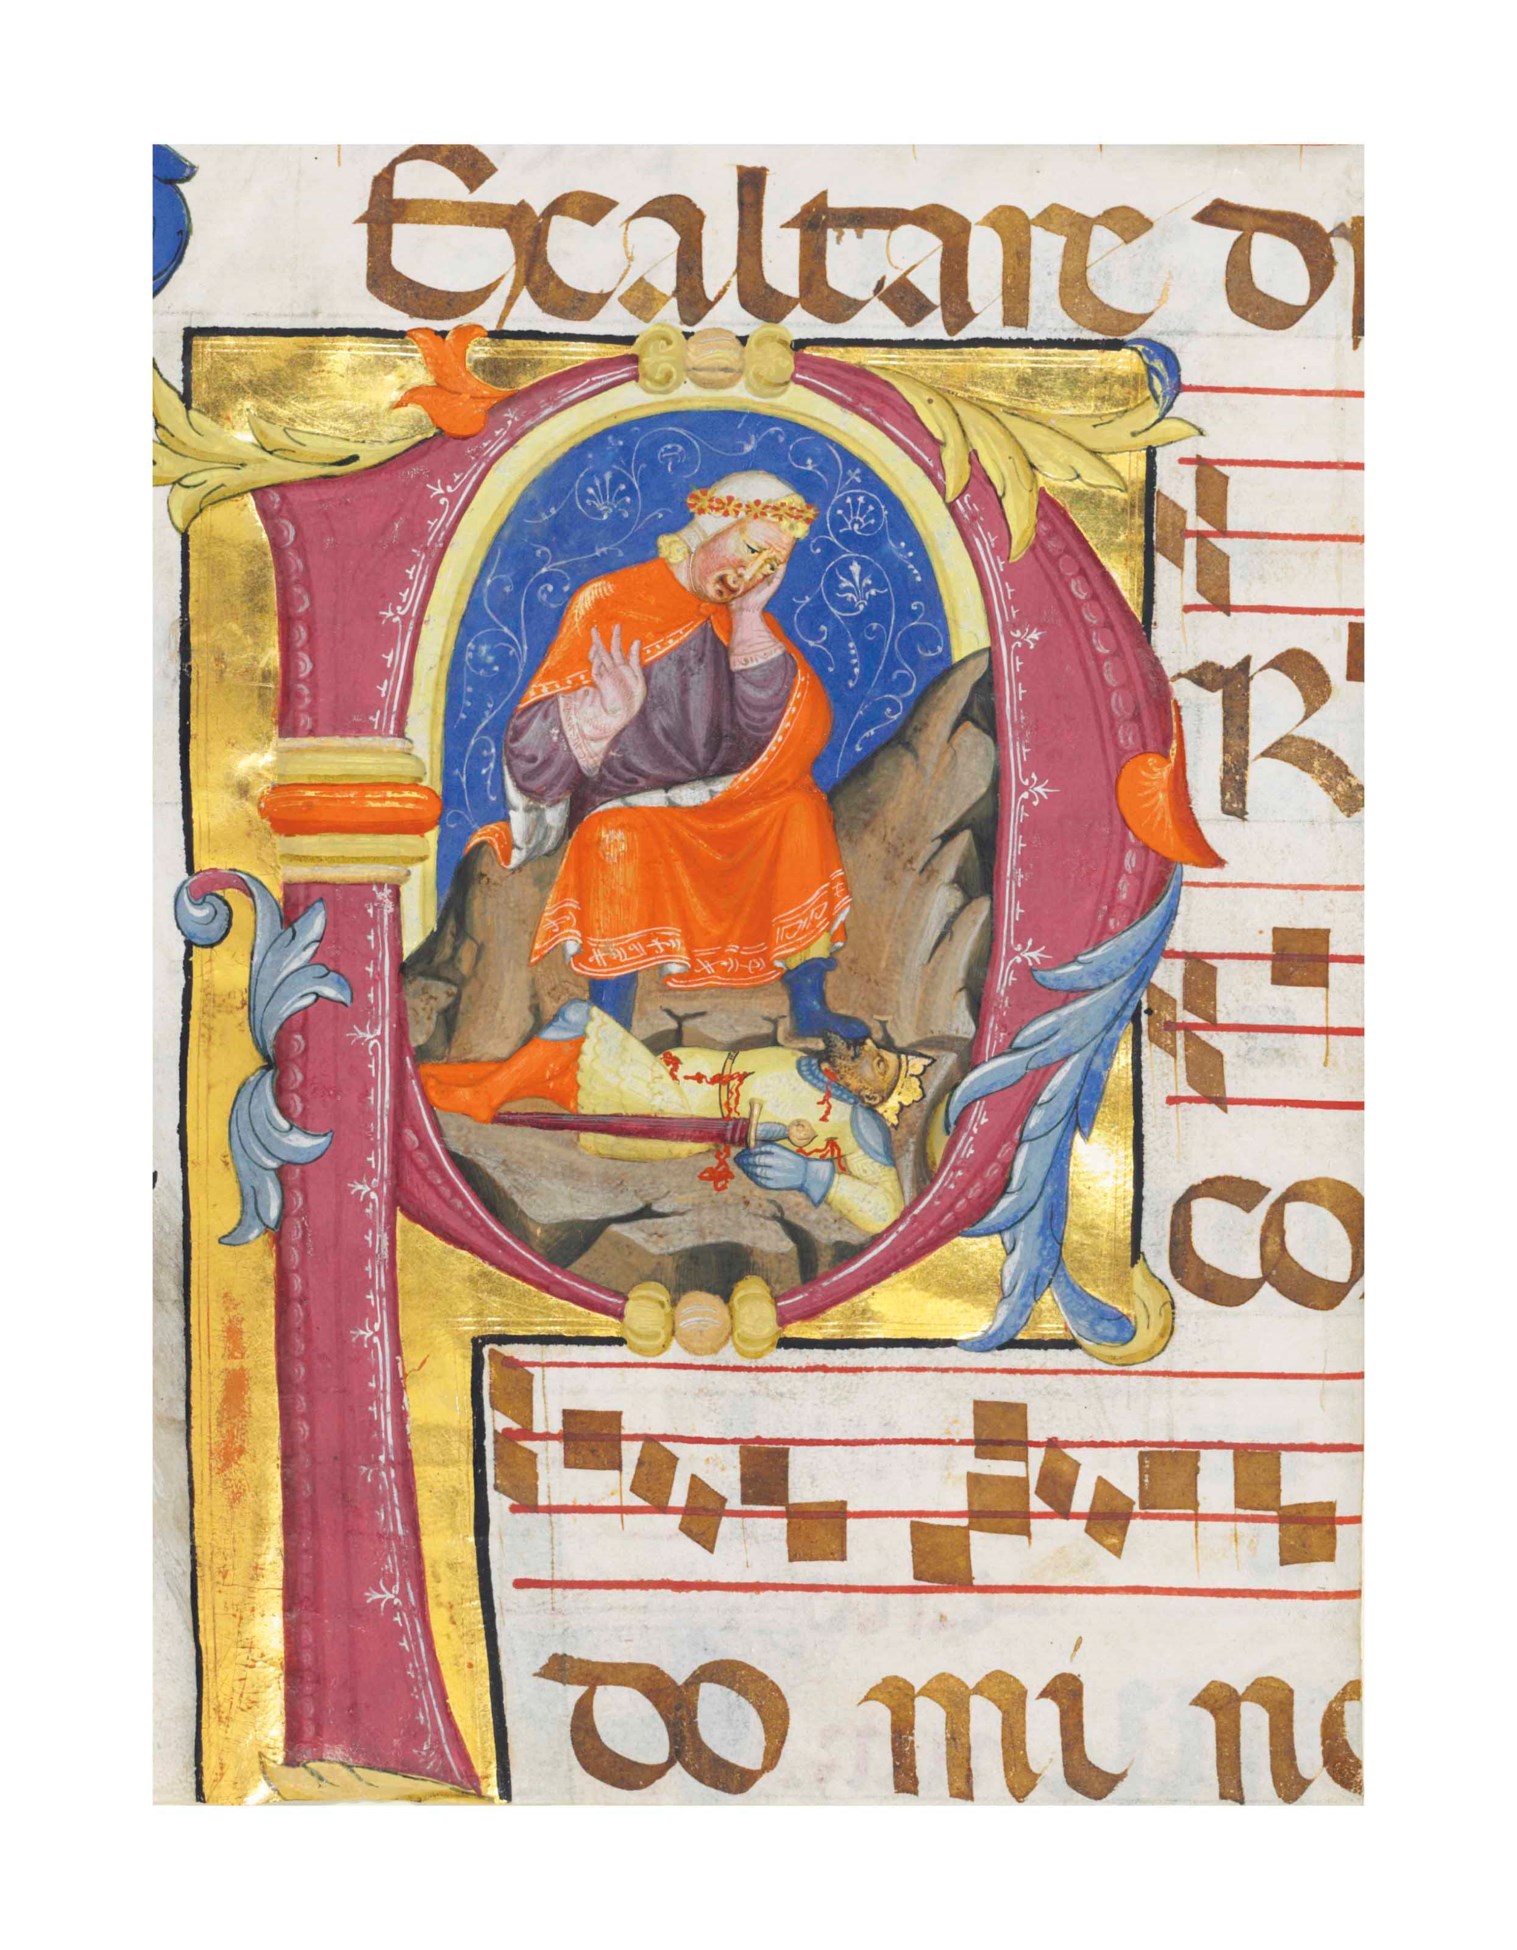 Exaltare d
PR
co
do mi no